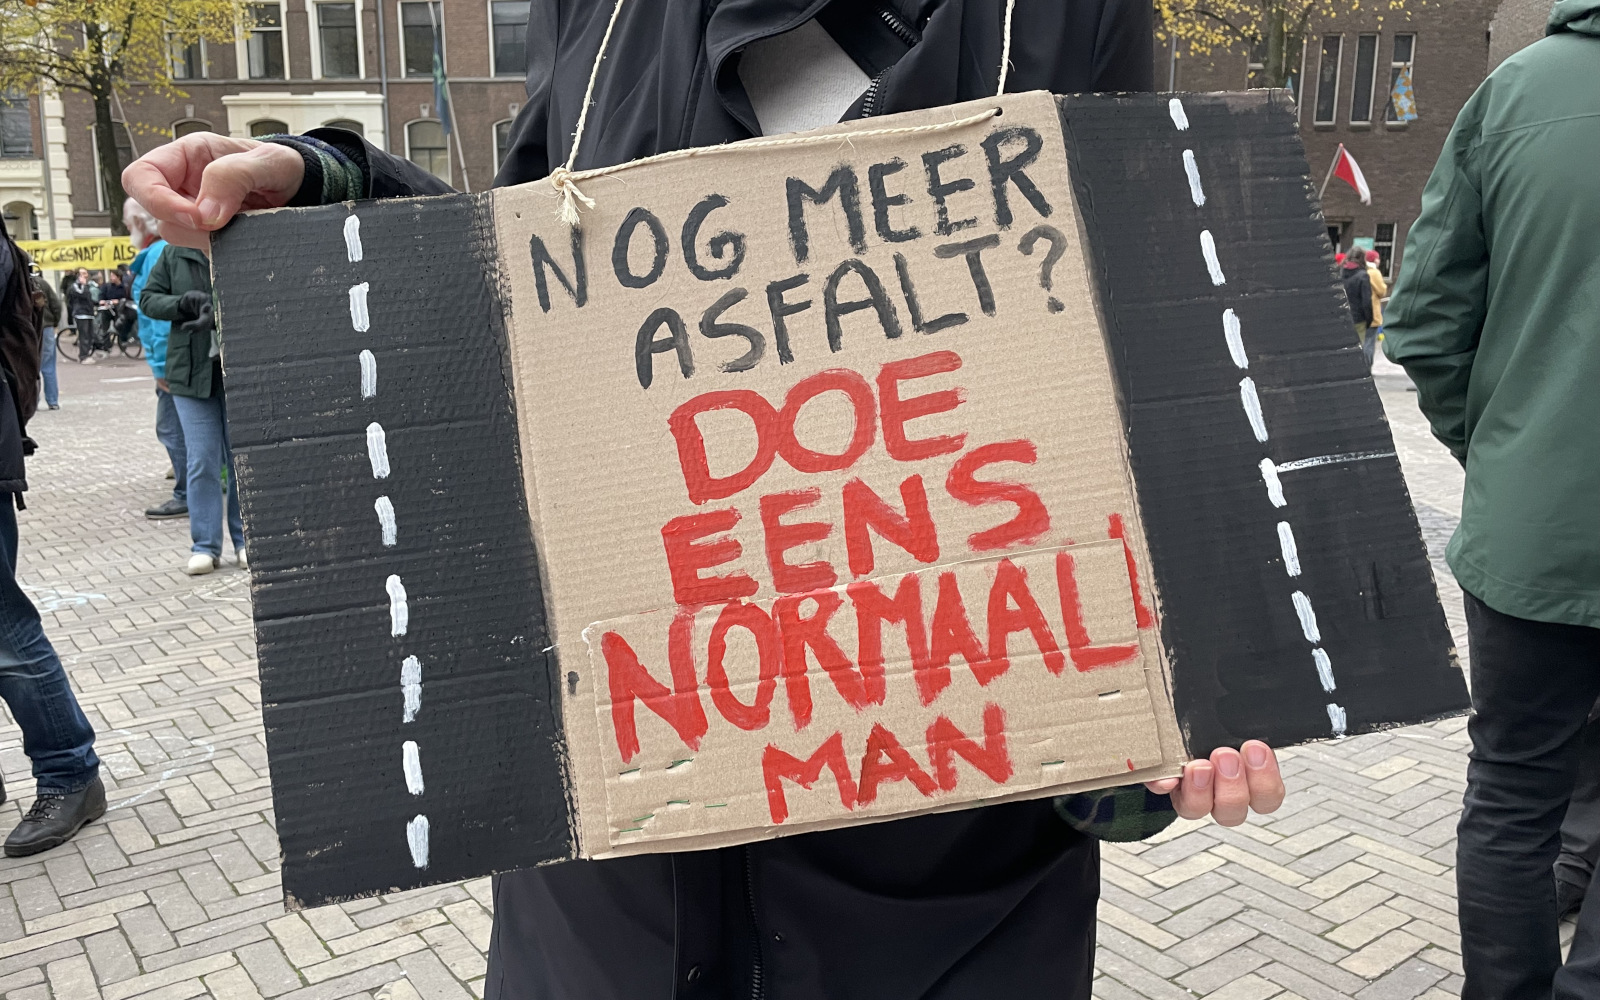 NOG MEER
ASFALT?
DOE
EENS
NORMAAL
MAN
GESNAPT ALS